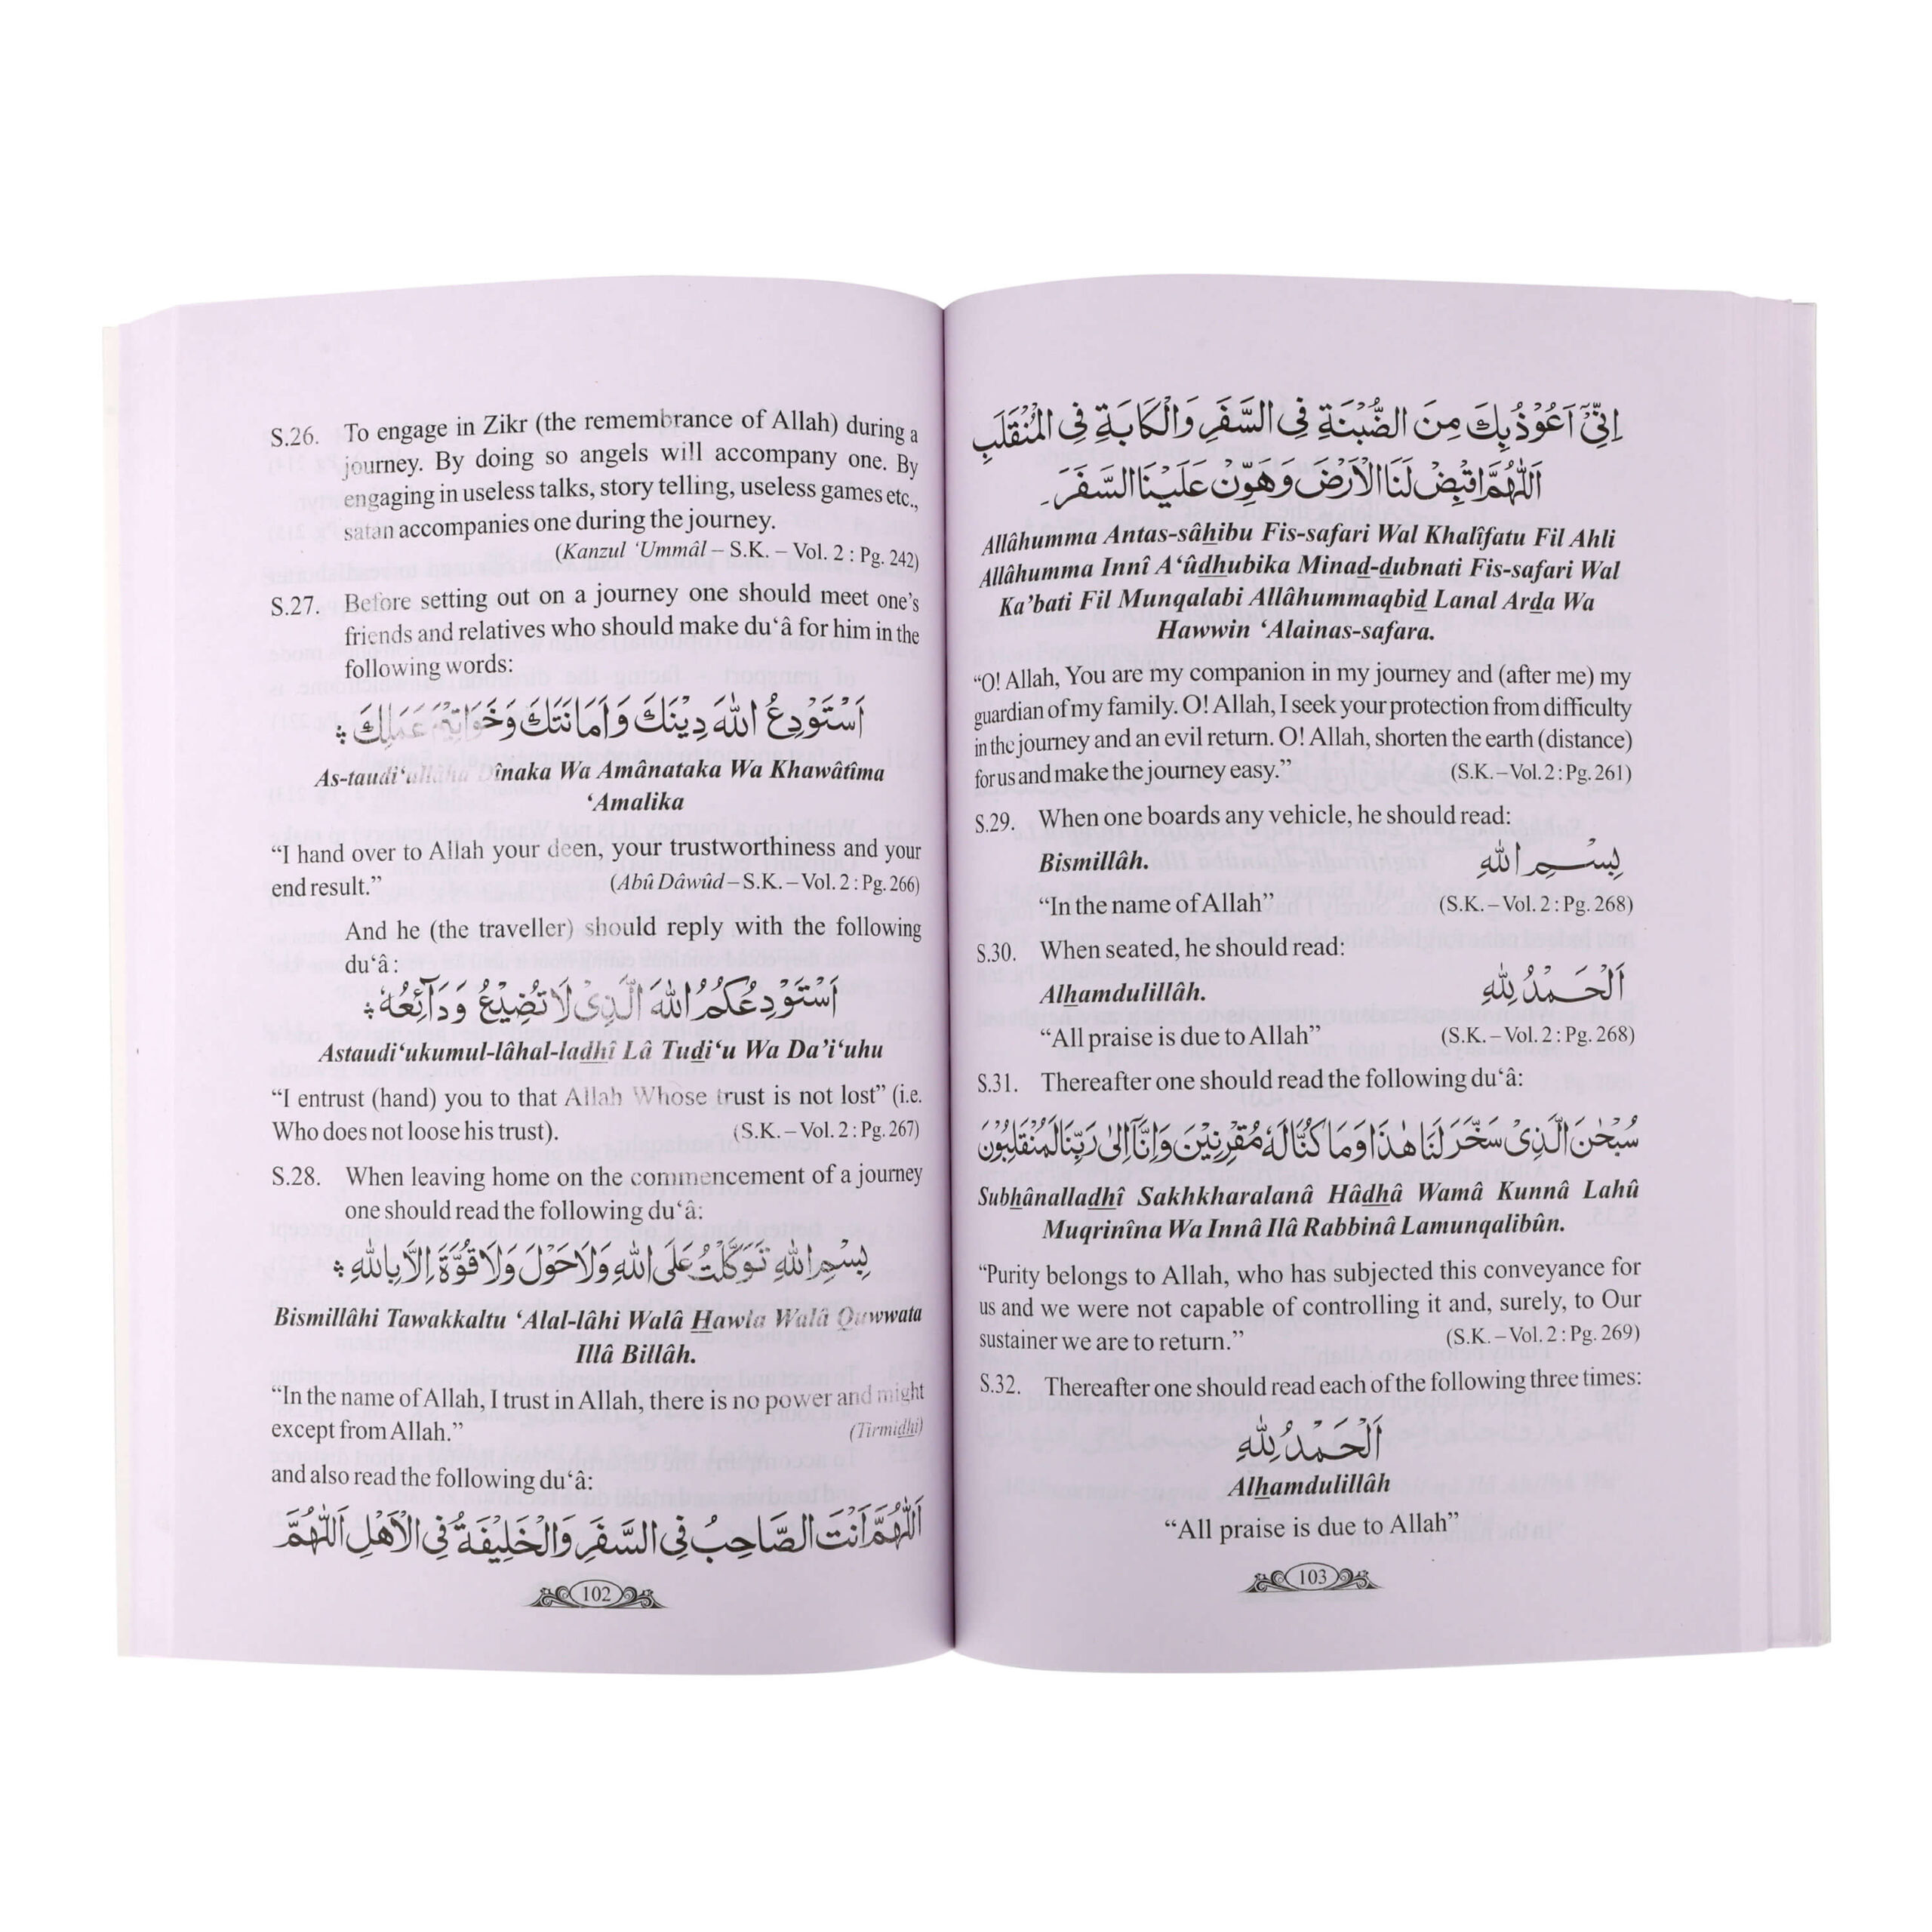 S.26. To engage in Zikr (the remembrance of Allah) during a
journey. By doing so angels will accompany one. By
engaging in useless talks, story telling, useless games etc.,
satan accompanies one during the journey.
(Kanzul ‘Ummâl – S.K. – Vol. 2 : Pg. 242)
S.27. Before setting out on a journey one should meet one’s
friends and relatives who should make du‘â for him in the
following words:
اَسْتَوْدِعُ اللّٰهَ دِيْنَكَ وَاَمَانَتَكَ وَخَوَاتِيْمَ عَمَلِكَ
As-taudi‘ullâha Dînaka Wa Amânataka Wa Khawâtîma
‘Amalika
“I hand over to Allah your deen, your trustworthiness and your
end result.” (Abû Dâwûd – S.K. – Vol. 2 : Pg. 266)
And he (the traveller) should reply with the following
du‘â :
اَسْتَوْدِعُكُمُ اللّٰهَ الَّذِىْ لَا تُضِيْعُ وَدَآئِعُهٗ
Astaudi‘ukumul-lâhal-ladhî Lâ Tudi‘u Wa Da’i‘uhu
“I entrust (hand) you to that Allah Whose trust is not lost” (i.e.
Who does not loose his trust). (S.K. – Vol. 2 : Pg. 267)
S.28. When leaving home on the commencement of a journey
one should read the following du‘â:
بِسْمِ اللّٰهِ تَوَكَّلْتُ عَلَى اللّٰهِ وَلَا حَوْلَ وَلَا قُوَّةَ اِلَّا بِاللّٰهِ
Bismillâhi Tawakkaltu ‘Alal-lâhi Walâ Hawla Walâ Quwwata
Illâ Billâh.
“In the name of Allah, I trust in Allah, there is no power and might
except from Allah.” (Tirmidhi)
and also read the following du‘â:
اَللّٰهُمَّ اَنْتَ الصَّاحِبُ فِى السَّفَرِ وَالْخَلِيْفَةُ فِى الْاَهْلِ اَللّٰهُمَّ
102
اِنِّىْٓ اَعُوْذُ بِكَ مِنَ الضُّبْنَةِ فِى السَّفَرِ وَالْكَابَةِ فِى الْمُنْقَلَبِ
اَللّٰهُمَّ اقْبِضْ لَنَا الْاَرْضَ وَهَوِّنْ عَلَيْنَا السَّفَرَ۔
Allâhumma Antas-sâhibu Fis-safari Wal Khalîfatu Fil Ahli
Allâhumma Innî A‘ûdhubika Minad-dubnati Fis-safari Wal
Ka’bati Fil Munqalabi Allâhummaqbid Lanal Arda Wa
Hawwin ‘Alainas-safara.
“O! Allah, You are my companion in my journey and (after me) my
guardian of my family. O! Allah, I seek your protection from difficulty
in the journey and an evil return. O! Allah, shorten the earth (distance)
for us and make the journey easy.” (S.K. – Vol. 2 : Pg. 261)
S.29. When one boards any vehicle, he should read:
Bismillâh. بِسْمِ اللّٰهِ
“In the name of Allah” (S.K. – Vol. 2 : Pg. 268)
S.30. When seated, he should read:
Alhamdulillâh. اَلْحَمْدُ لِلّٰهِ
“All praise is due to Allah” (S.K. – Vol. 2 : Pg. 268)
S.31. Thereafter one should read the following du‘â:
سُبْحٰنَ الَّذِىْ سَخَّرَ لَنَا هٰذَا وَمَا كُنَّا لَهٗ مُقْرِنِيْنَ وَاِنَّآ اِلٰى رَبِّنَا لَمُنْقَلِبُوْنَ
Subhânalladhî Sakhkharalanâ Hâdhâ Wamâ Kunnâ Lahû
Muqrinîna Wa Innâ Ilâ Rabbinâ Lamunqalibûn.
“Purity belongs to Allah, who has subjected this conveyance for
us and we were not capable of controlling it and, surely, to Our
sustainer we are to return.” (S.K. – Vol. 2 : Pg. 269)
S.32. Thereafter one should read each of the following three times:
اَلْحَمْدُ لِلّٰهِ
Alhamdulillâh
“All praise is due to Allah”
103